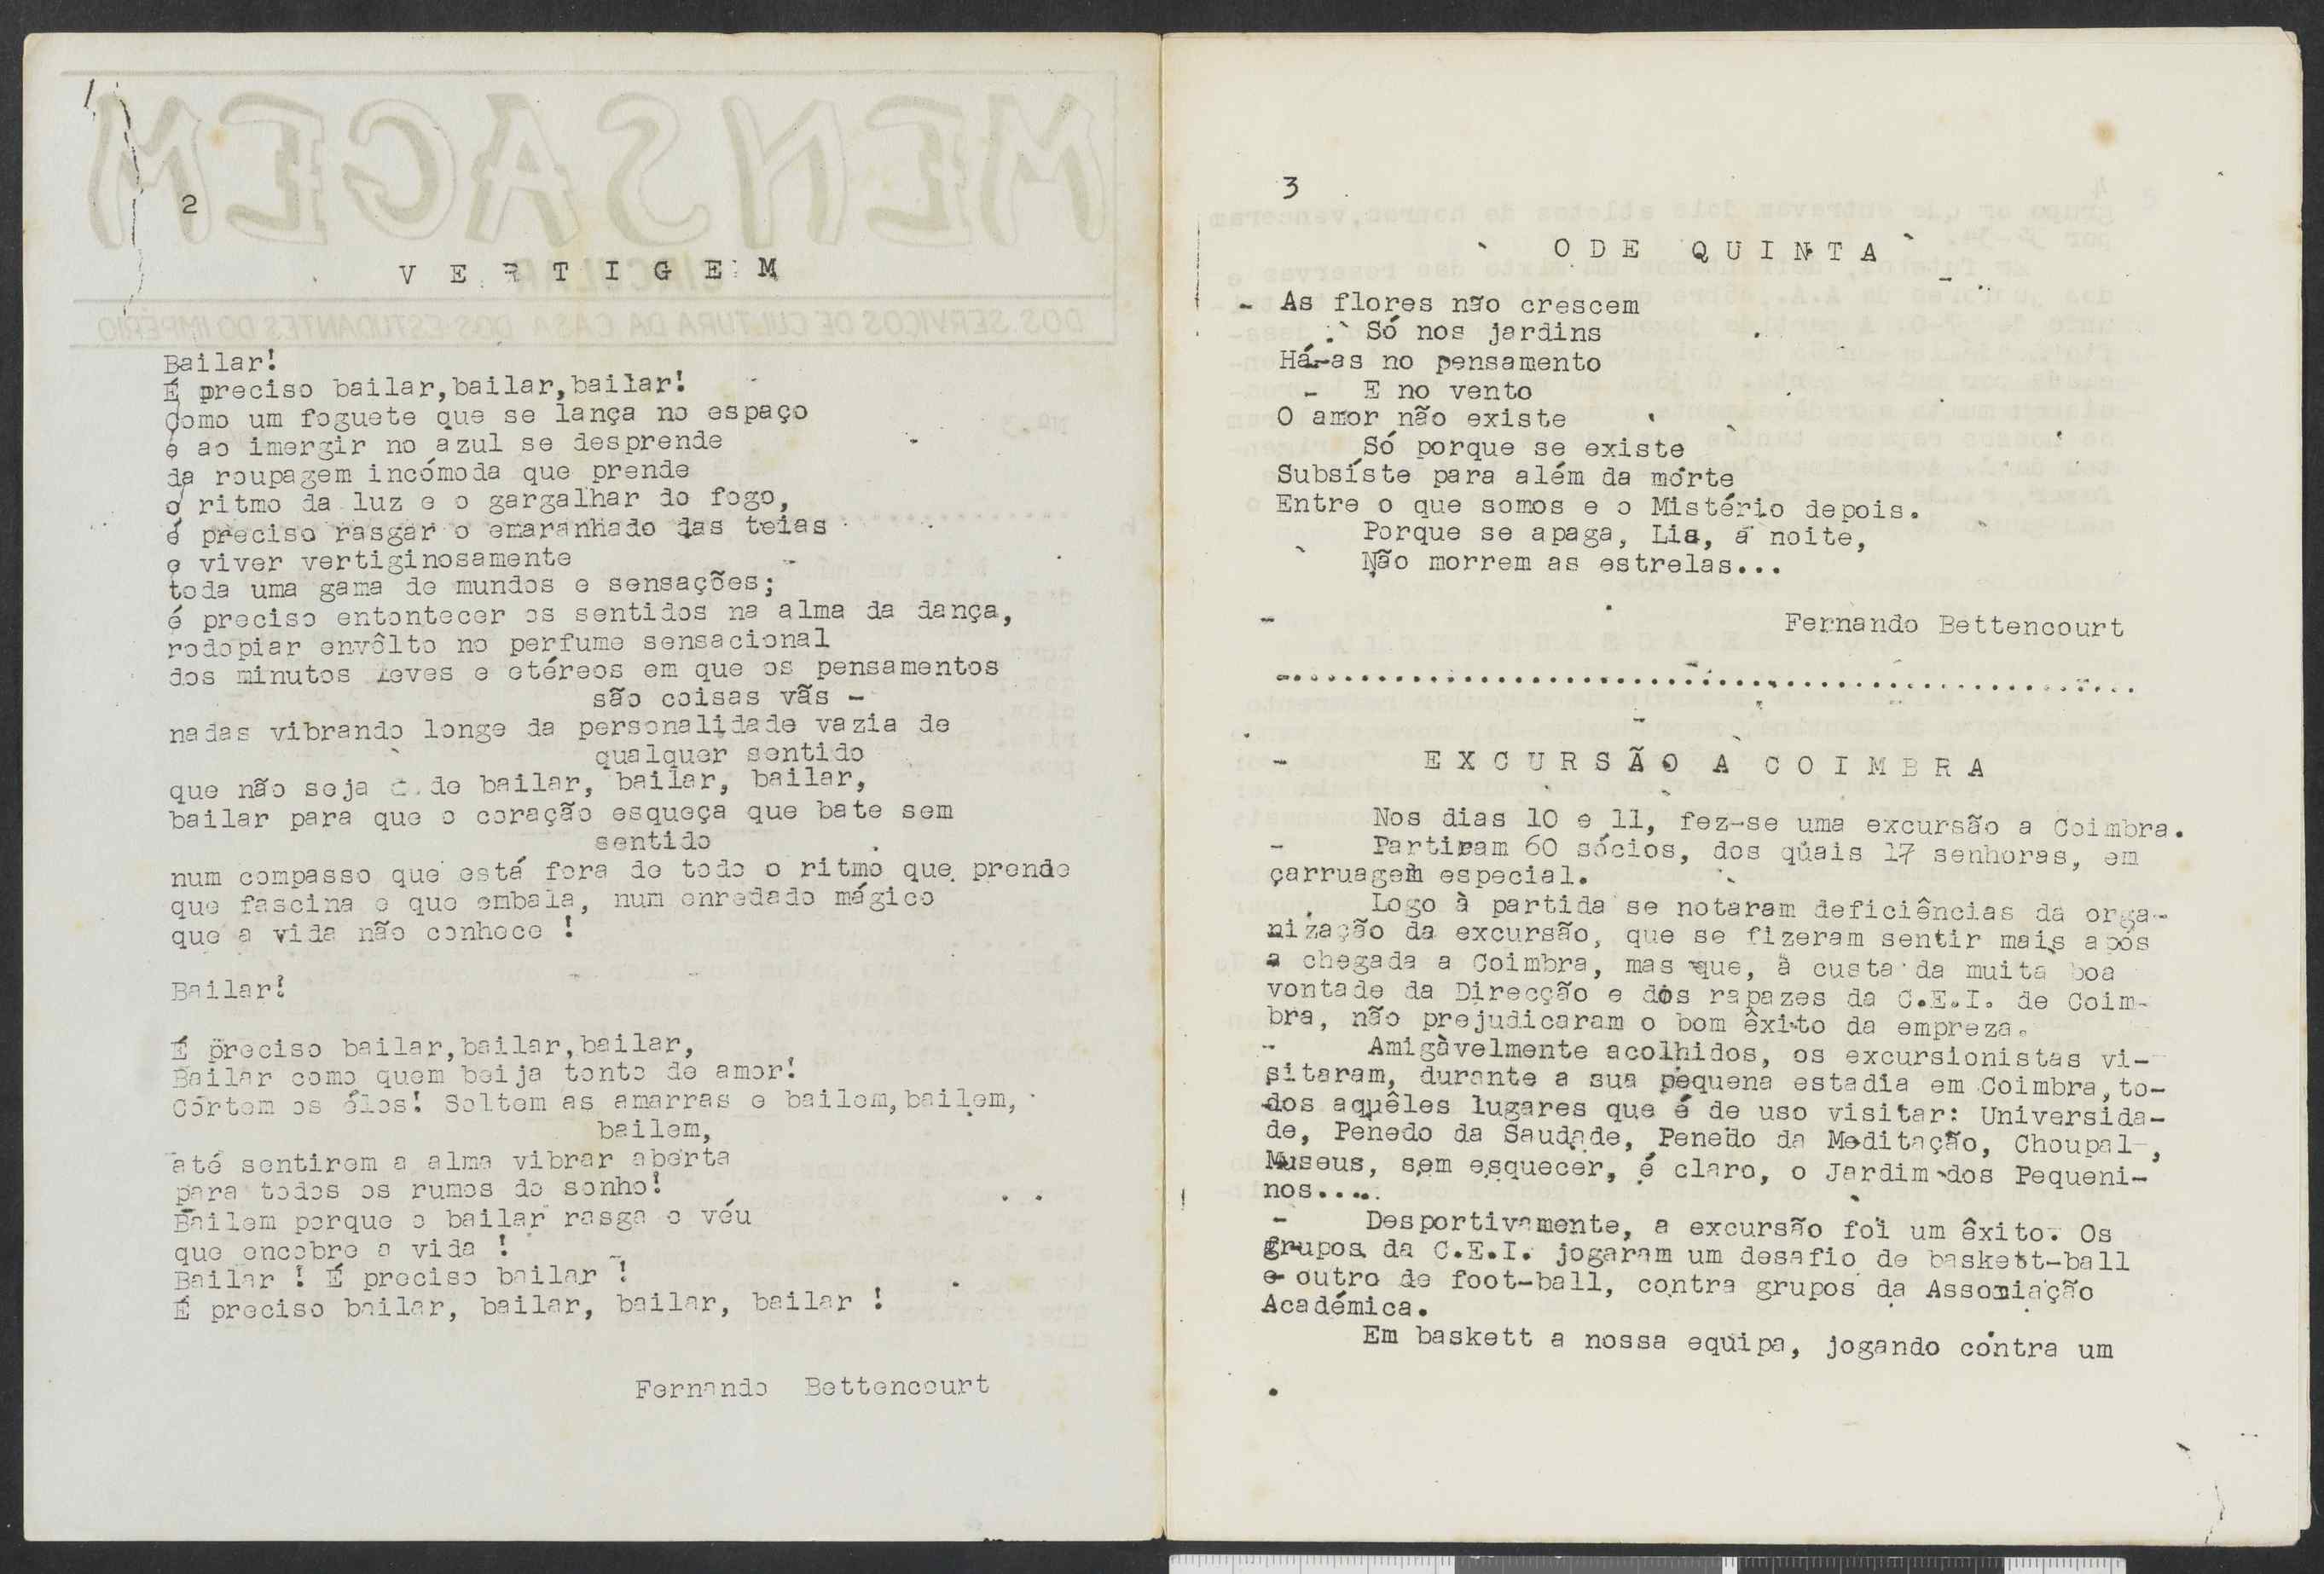 2
V E R T I G E M
Bailar!
É preciso bailar,bailar,bailar!
Como um foguete que se lança no espaço
e ao imergir no azul se desprende
da roupagem incómoda que prende
o ritmo da luz e o gargalhar do fogo,
é preciso rasgar o emaranhado das teias
e viver vertiginosamente
toda uma gama de mundos e sensações;
é preciso entontecer os sentidos na alma da dança,
rodopiar envôlto no perfume sensacional
dos minutos leves e etéreos em que os pensamentos
são coisas vãs -
nadas vibrando longe da personalidade vazia de
qualquer sentido
que não seja o de bailar, bailar, bailar,
bailar para que o coração esqueça que bate sem
sentido
num compasso que está fora de todo o ritmo que prende
que fascina e que embala, num enredado mágico
que a vida não conhece !
Bailar!
É preciso bailar,bailar,bailar,
Bailar como quem beija tonto de amor!
Córtem os élos! Soltem as amarras e bailem,bailem,
bailem,
até sentirem a alma vibrar aberta
para todos os rumos do sonho!
Bailem porque o bailar rasga o véu
que encobre a vida !
Bailar ! É preciso bailar !
É preciso bailar, bailar, bailar, bailar !
Fernando Bettencourt
3
O D E Q U I N T A
As flores não crescem
Só nos jardins
Há-as no pensamento
E no vento
O amor não existe
Só porque se existe
Subsiste para além da morte
Entre o que somos e o Mistério depois.
Porque se apaga, Lia, a noite,
Não morrem as estrelas...
Fernando Bettencourt
E X C U R S Ã O A C O I M B R A
Nos dias 10 e 11, fez-se uma excursão a Coimbra.
Partiram 60 sócios, dos quais 17 senhoras, em
carruagem especial.
Logo à partida se notaram deficiências da orga-
nização da excursão, que se fizeram sentir mais após
a chegada a Coimbra, mas que, à custa da muita boa
vontade da Direcção e dos rapazes da C.E.I. de Coim-
bra, não prejudicaram o bom êxito da empreza.
Amigàvelmente acolhidos, os excursionistas vi-
sitaram, durante a sua pequena estadia em Coimbra,to-
dos aquêles lugares que é de uso visitar: Universida-
de, Penedo da Saudade, Penedo da Meditação, Choupal ,
Museus, sem esquecer, é claro, o Jardim dos Pequeni-
nos.....
Desportivamente, a excursão foi um êxito. Os
grupos da C.E.I. jogaram um desafio de baskett-ball
e outro de foot-ball, contra grupos da Associação
Académica.
Em baskett a nossa equipa, jogando contra um